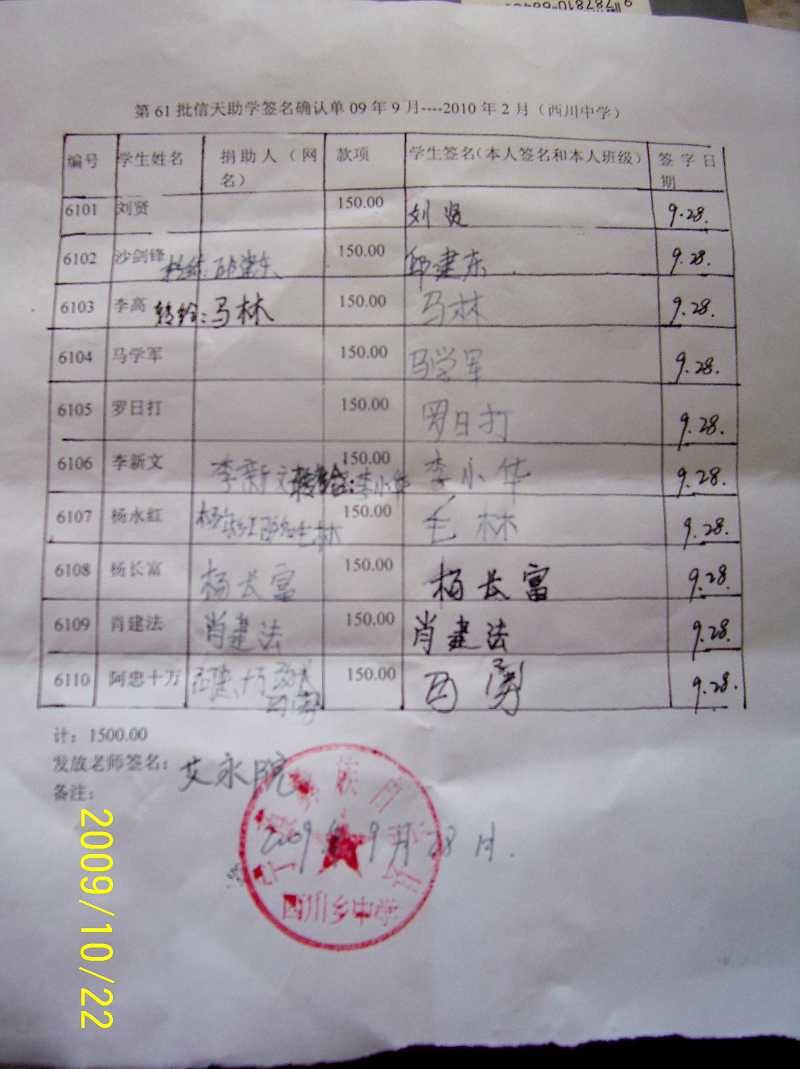 第61批信天助学签名确认单09年9月----2010年2月（西川中学）
编号 学生姓名 捐助人（网名） 款项 学生签名（本人签名和本人班级） 签字日期
6101 刘贤 150.00 刘贤 9.28.
6102 沙剑锋 转给:邱建东 150.00 邱建东 9.28.
6103 李高 转给:马林 150.00 马林 9.28.
6104 马学军 150.00 马学军 9.28.
6105 罗日打 150.00 罗日打 9.28.
6106 李新文 李新文转给:李小华 150.00 李小华 9.28.
6107 杨永红 毛林 150.00 毛林 9.28.
6108 杨长富 杨长富 150.00 杨长富 9.28.
6109 肖建法 肖建法 150.00 肖建法 9.28.
6110 阿忠十万 150.00 9.28.
计：1500.00
发放老师签名：艾永
备注：
2009年9月28日.
西川乡中学
2009/10/22